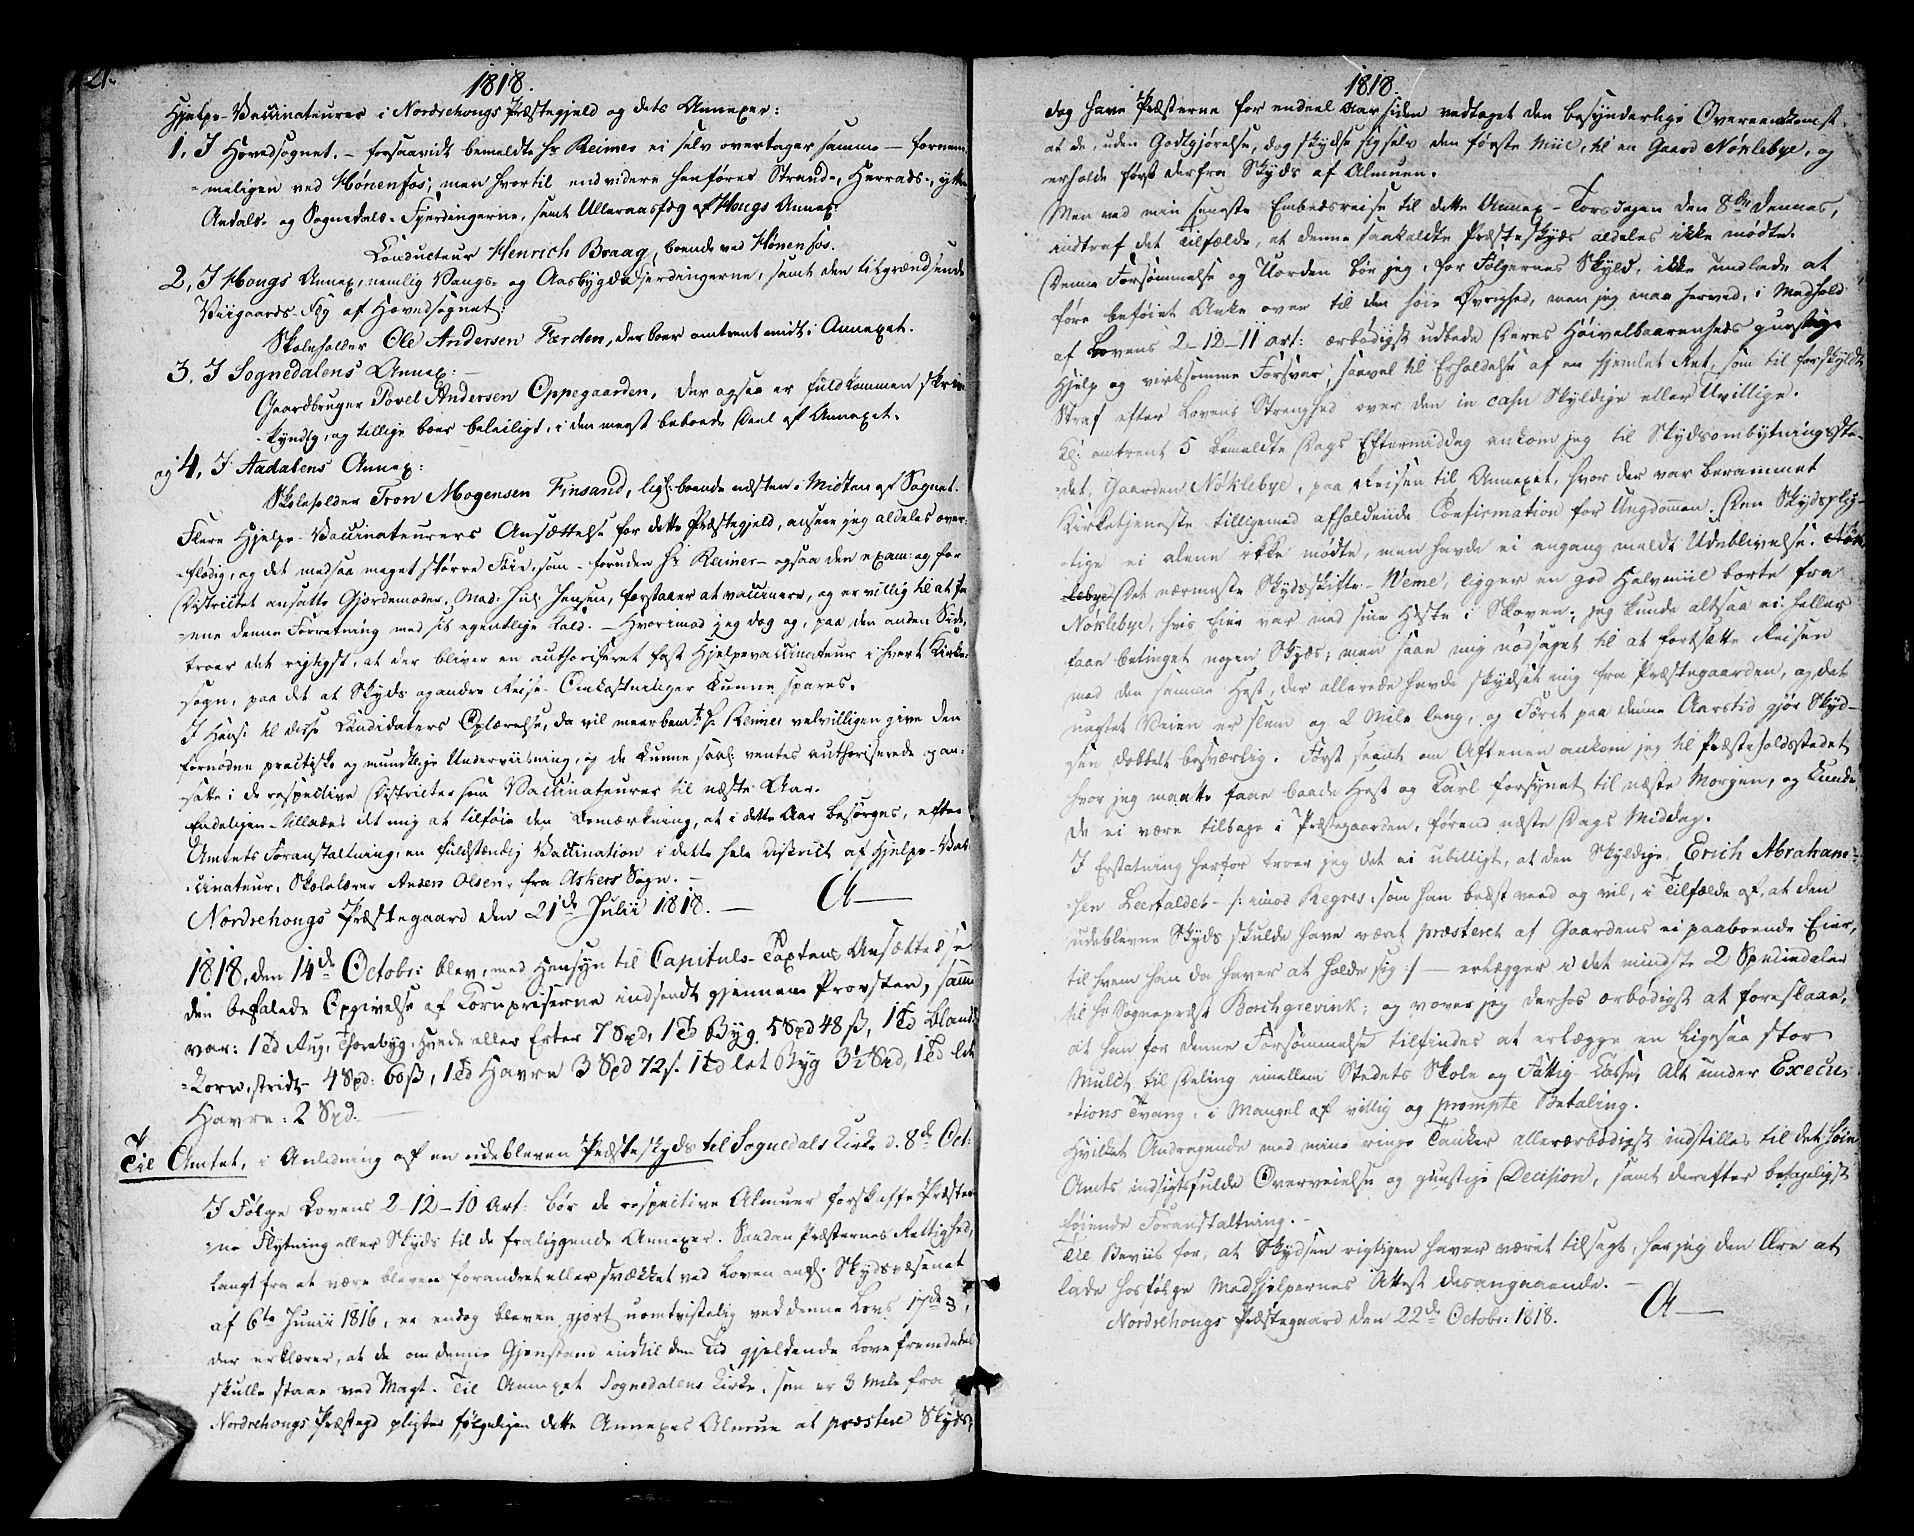 21.
1818.
Hjelpe-Vaccinateurer i Nordrehougs Præstegjeld og dets Annexer:
1, I Hovedsognet. – forsaavidt bemeldte Hr Reimer ei selv overtager samme – fornem-
-meligen ved Hønenfos; men hvortil endvidere henføres Strand-, Herrads-, ytre
Aadals- og Sognedals-Fjerdingerne, samt Ulleraasflæg af Hougs Annex:
Conducteur Henrich Braag, boende ved Hønenfos.
2, I Hougs Annex, nemlig Vangs- og Aasbygdsfjerdingerne, samt den tilgrændsende
Viigaards-Flg af Hovedsognet:
Skoleholder Ole Andersen Færden, der boer omtrent midt i Annexet.
3. I Sognedalens Annex: –
Gaardbruger Povel Andersen Oppegaarden, der ogsaa er fuldkommen skriv-
-kyndig, og tillige boer beleiligt, i den mest beboede Deel af Annexet.
og 4, I Aadalens Annex:
Skoleholder Tron Mogensen Finsand, lig: boende næsten i Midten af Sognet.
Flere Hjelpe-Vaccinateurers Ansættelse for dette Præstegjeld, ansees jeg aldeles over-
-flødig, og det medsaa meget større Føie, som – foruden Hr Reimer – ogsaa den exam: og for
Districtet ansatte Gjordemoder, Mad: Jensen, forstaaer at vaccinere, og er villig til at for-
-ene denne Forretning med sit egentlige Kald. – Hvorimod jeg dog og, paa den anden Side,
troer det rigtigst, at der bliver en authoriseret fast Hjelpevaccinateur i hvert Kirke-
sogn, paa det at Skyds og andre Reise-Omkostninger kunne spares.
I Hensi: til disse Kandidaters Oplærelse, da vil meerbemte Hr Reimer velvilligen give den
fornødne practiske og mundtlige Underviisning, og de kunne saal: ventes authoriserede og an-
-satte i de respective Districter som Vaccinateurer til næste Aar.
Endeligen tillades det mig at tilføie den Bemærkning, at i dette Aar besørges, efter
Amtets Foranstaltning, en fuldstændig Vaccination i dette hele District af Hjelpe-Vac-
-cinateur, Skolelærer Anders Olsen, fra Askers Sogn. –
Nordrehougs Præstegaard den 21de Julii 1818. –
1818, den 14de Octobr: blev, med Hensyn til Capituls-Taxtens Ansættelse
den befalede Opgivelse af Kornpriserne indsendt gjennem Provsten, som
var: 1 Td Rug, Thorebyg, Hvede eller Erter 7 Spd, 1 Td Byg 5 Spd 48 ß, 1 Td Bland-
-Korn, stridt 4 Spd: 60 ß, 1 Td Havre 3 Spd 72 ß. 1 Td let Byg 3½ Spd, 1 Td let
Havre: 2 Spd.
Til Amtet, i Anledning af en udebleven Præsteskyds til Sognedals Kirke d: 8de Oct:
I Følge Lovens 2-12-10 Art: bør de respective Almuer forskaffe Præster-
-ne Flytning eller Skyds til de fraliggende Annexer. Saadan Præsternes Rettighed,
langt fra at være bleven forandret eller svækket ved Loven ang: Skydsvæsenet
af 6te Junii 1816, er endog bleven gjort uomtvistelig ved denne Lovs 17de §,
der erklærer, at de om denne Gjenstand indtil den Tid gjeldende Love fremdeles
skulle staae ved Magt. Til Annexet Sognedalens Kirke, som er 3 Mile fra
Nordrehougs Præstegd pligter følgeligen dette Annexes Almue at præstere Skyds,
1818.
dog have Præsterne for endeel Aar siden vedtaget den besynderlige Overeenskomst,
at de, uden Godtgjørelse, dog skydse sig selv den første Miil, til en Gaard Nøklebye, og
erholde først derfra Skyds af Almuen.
Men ved min seneste Embedsreise til dette Annex – Torsdagen den 8de dennes,
indtraf det Tilfælde, at denne saakaldte Præsteskyds aldeles ikke mødte.
Denne Forsømmelse og Uorden bør jeg, for Følgernes Skyld, ikke undlade at
føre beføiet Anke over til den høie Øvrighed, men jeg maa herved, i Medhold
af Lovens 2-12-11 Art: ærbødigst udbede Deres Høivelbaarenheds gunstige
Hjelp og virksomme Forsvar, saavel til Erholdelse af en hjemlet Ret, som til forskyldt
Straf efter Lovens Strenghed over den in casu Skyldige eller Uvillige.
Kl: omtrent 5 bemeldte Dags Eftermiddag ankom jeg til Skydsombytningsste-
-det, Gaarden Nøklebye, paa Reisen til Annexet, hvor der var berammet
Kirketjeneste tilligemed afholdende Confirmation for Ungdommen. Den Skydsplig-
-tige ei alene ikke mødte, men havde ei engang meldt Udeblivelse. Nøk
lebye Det nærmeste Skydsskifte – Veme, ligger en god Halvmiil borte fra
Nøklebye, hvis Eier var med sine Heste i Skoven; jeg kunde altsaa ei heller
faae betinget nogen Skyds; men saae mig nødsaget til at fortsætte Reisen
med den samme Hest, der allerede havde skydset mig fra Præstegaarden, og det
uagtet Veien er slem og 2 Mile lang, og Føret paa denne Aarstid gjør Skyd-
-sen dobbelt besværlig. Først seent om Aftenen ankom jeg til Præsteholdsstedet
hvor jeg maatte faae baade Hest og Karl forsynet til næste Morgen, og kunde
de ei være tilbage i Præstegaarden, førend næste Dags Middag.
I Erstatning herfor troer jeg det ei ubilligt, at den Skyldige, Erich Abraham-
-sen Leerfaldet – /: imod Regres, som han bedst veed og vil, i Tilfælde af, at den
udeblevne Skyds skulde have været præsteret af Gaardens ei paaboende Eier,
til hvem han da haver at holde sig :/ – erlægger i det mindste 2 Speciedaler
til Hr Sognepræst Borchgrevink; og vover jeg derhos ærbødigst at foreslaae,
at han for denne Forsømmelse tilfindes at erlægge en ligesaa stor
Mulct, til Deling imellem Stedets Skole og Fattig Casse; Alt under Execu-
-tions Tvang, i Mangel af villig og prompte Betaling.
Hvilket Andragende med mine ringe Tanker allerærbødigst indstilles til det høie
Amts indsigtsfulde Overveielse og gunstige Decision, samt derefter behageligst
føiende Foranstaltning. –
Til Beviis for, at Skydsen rigtigen haver været tilsagt, har jeg den Ære at
lade hosfølge Medhjelpernes Attest desangaaende. –
Nordrehougs Præstegaard den 22de Octobr: 1818.